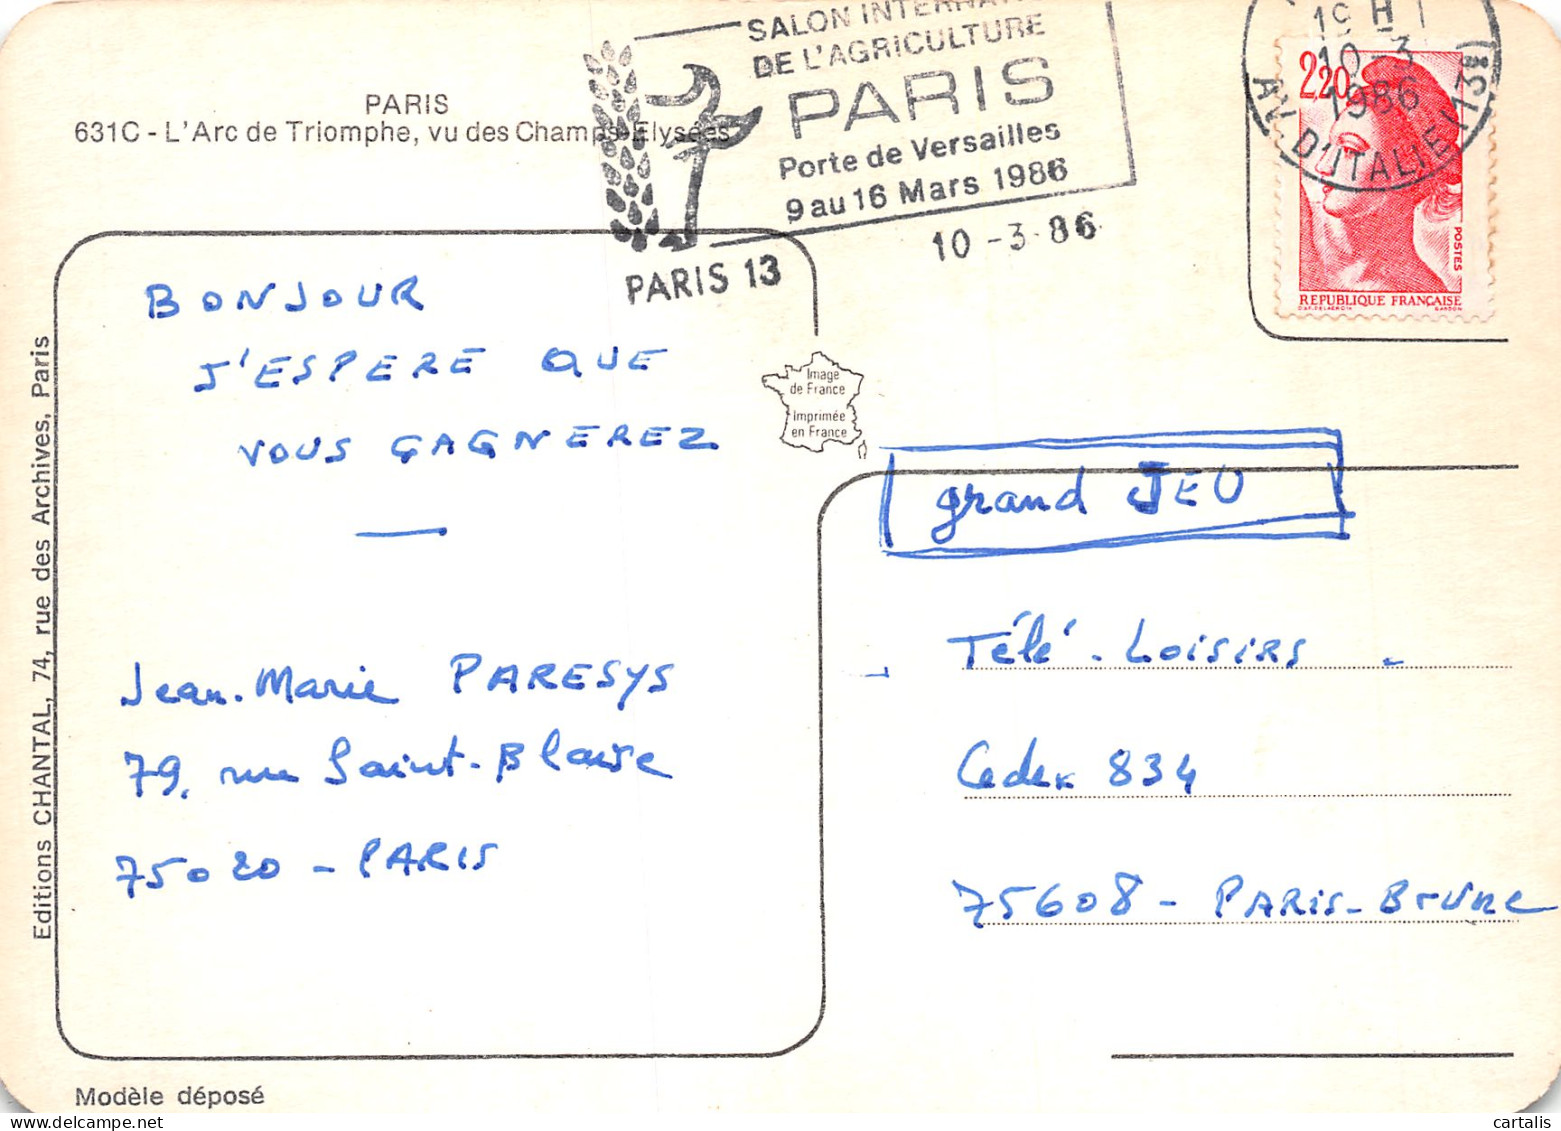 PARIS
631C - L'Arc de Triomphe, vu des Champs-Elysées
SALON INTERNAT
DE L'AGRICULTURE
PARIS
Porte de Versailles
9 au 16 Mars 1986
10 - 3 - 86
PARIS 13
19 H
10-3
1986
AV. D'ITALIE (13e)
2,20
POSTES
REPUBLIQUE FRANÇAISE
BONJOUR
J'ESPERE QUE
VOUS GAGNEREZ
—
Jean-Marie PARESYS
79, rue Saint-Blaise
75020 - PARIS
Image
de France
Imprimée
en France
grand JEU
Télé-Loisirs -
Cedex 834
75608 - PARIS-Brune
Editions CHANTAL, 74, rue des Archives, Paris
Modèle déposé
cartalis